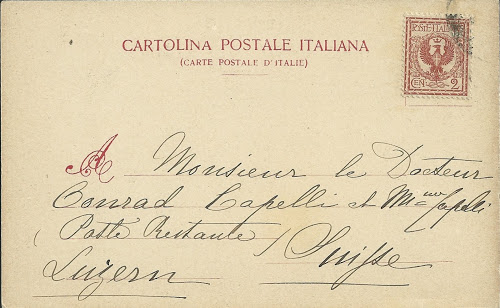 POSTE ITALIANE
CEN. 2
CARTOLINA POSTALE ITALIANA
(CARTE POSTALE D'ITALIE)
A Monsieur le Docteur
Conrad Capelli et Mme Capelli
(Poste Restante) Suisse
Luzern